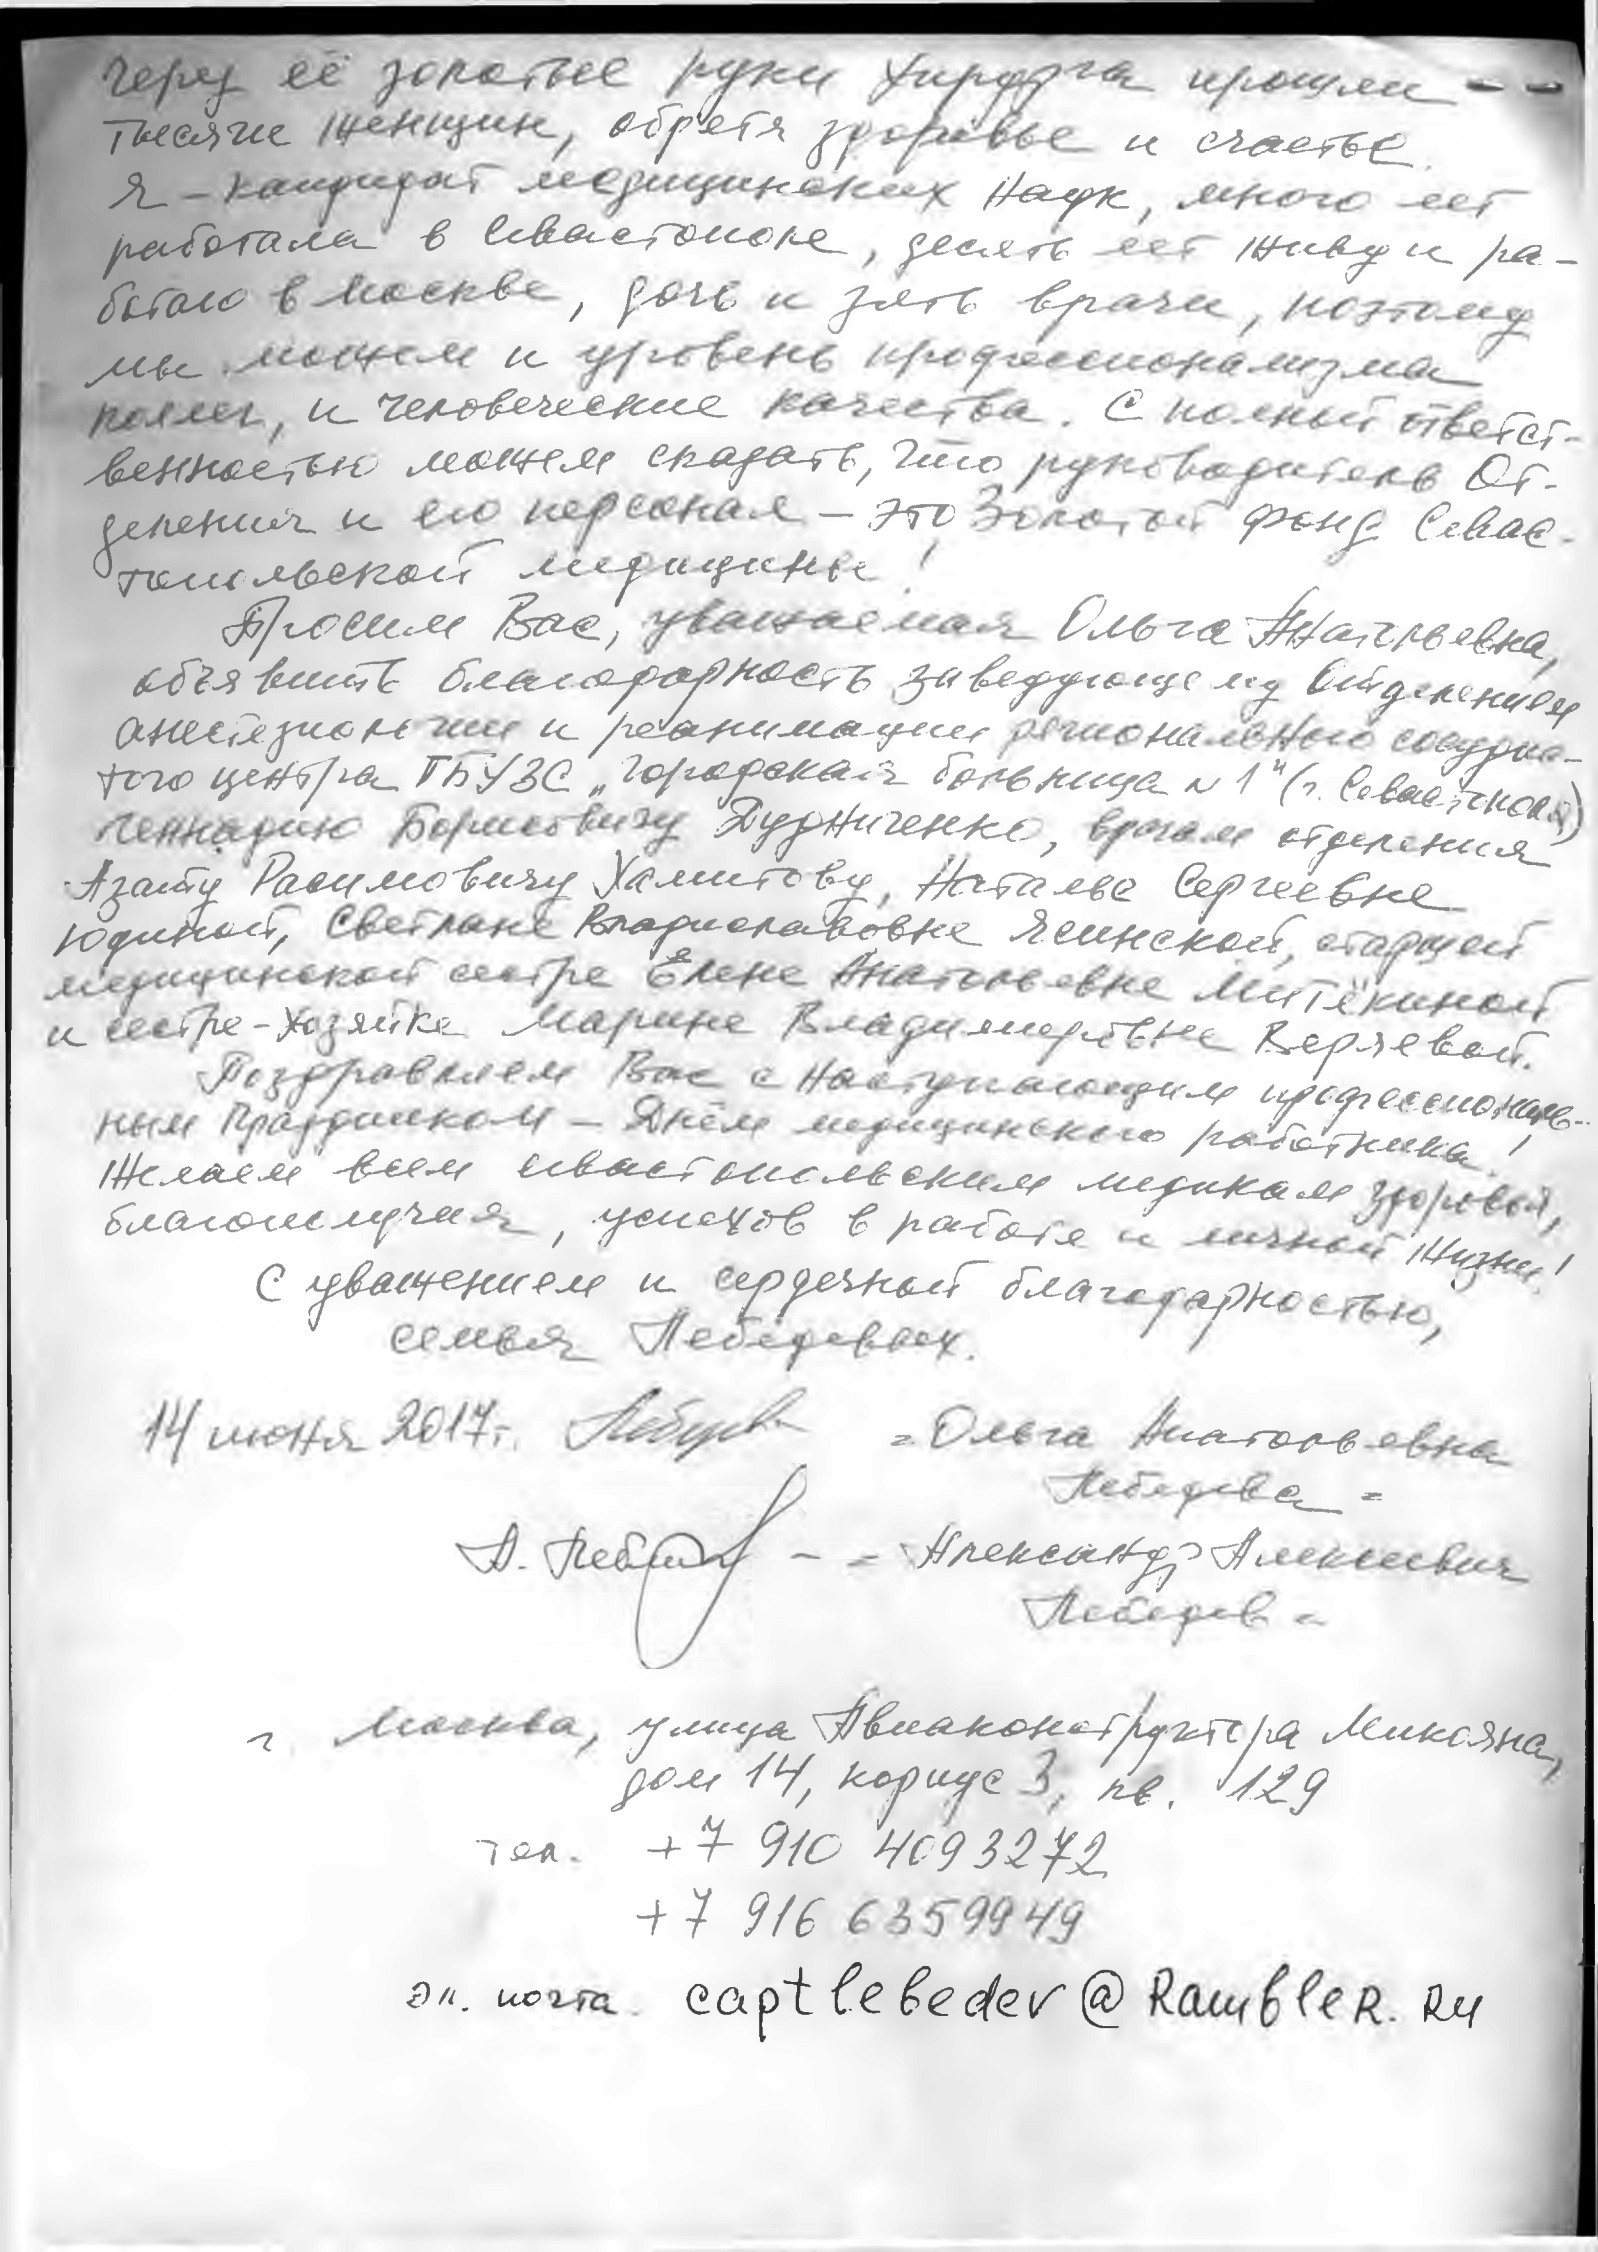 через её золотые руки хирурга прошли --
тысячи женщин, обретя здоровье и счастье.
Я – кандидат медицинских наук, много лет
работала в Севастополе, десять лет живу и ра-
ботаю в Москве, дочь и зять врачи, поэтому
мы можем и уровень профессионализма
коллег, и человеческие качества. С полной ответст-
венностью можем сказать, что руководитель От-
деления и его персонал – это Золотой фонд Севас-
топольской медицины!
Просим Вас, уважаемая Ольга Анатольевна,
объявить благодарность заведующему Отделением
анестезиологии и реанимации регионального сосудис-
того центра ГБУЗС „Городская больница N 1" (г. Севастополя)
Геннадию Борисовичу Дудниченко, врачам отделения
Азату Расимовичу Хамитову, Наталье Сергеевне
Юдиной, Светлане Владиславовне Ясинской, старшей
медицинской сестре Елене Анатольевне Митёкиной
и сестре-хозяйке Марине Владимировне Веряевой.
Поздравляем Вас с наступающим профессиональ-
ным праздником – Днём медицинского работника!
Желаем всем севастопольским медикам здоровья,
благополучия, успехов в работе и личной жизни!
С уважением и сердечной благодарностью,
семья Лебедевых.
14 июня 2017г. Лебедева = Ольга Анатольевна
Лебедева =
А. Лебедев – = Александр Алексеевич
Лебедев =
г. Москва, улица Авиаконструктора Микояна,
дом 14, корпус 3, кв. 129
тел. +7 910 4093272
+7 916 6359949
эл. почта. captlebedev@RambleR.Ru